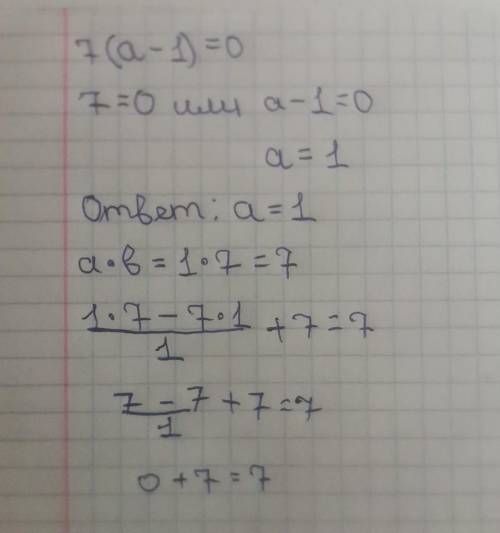 7(a-1)=0
7=0 или a-1=0
a=1
Ответ: a=1
a·в=1·7=7
(1·7-7·1)/1+7=7
(7-7)/1+7=7
0+7=7